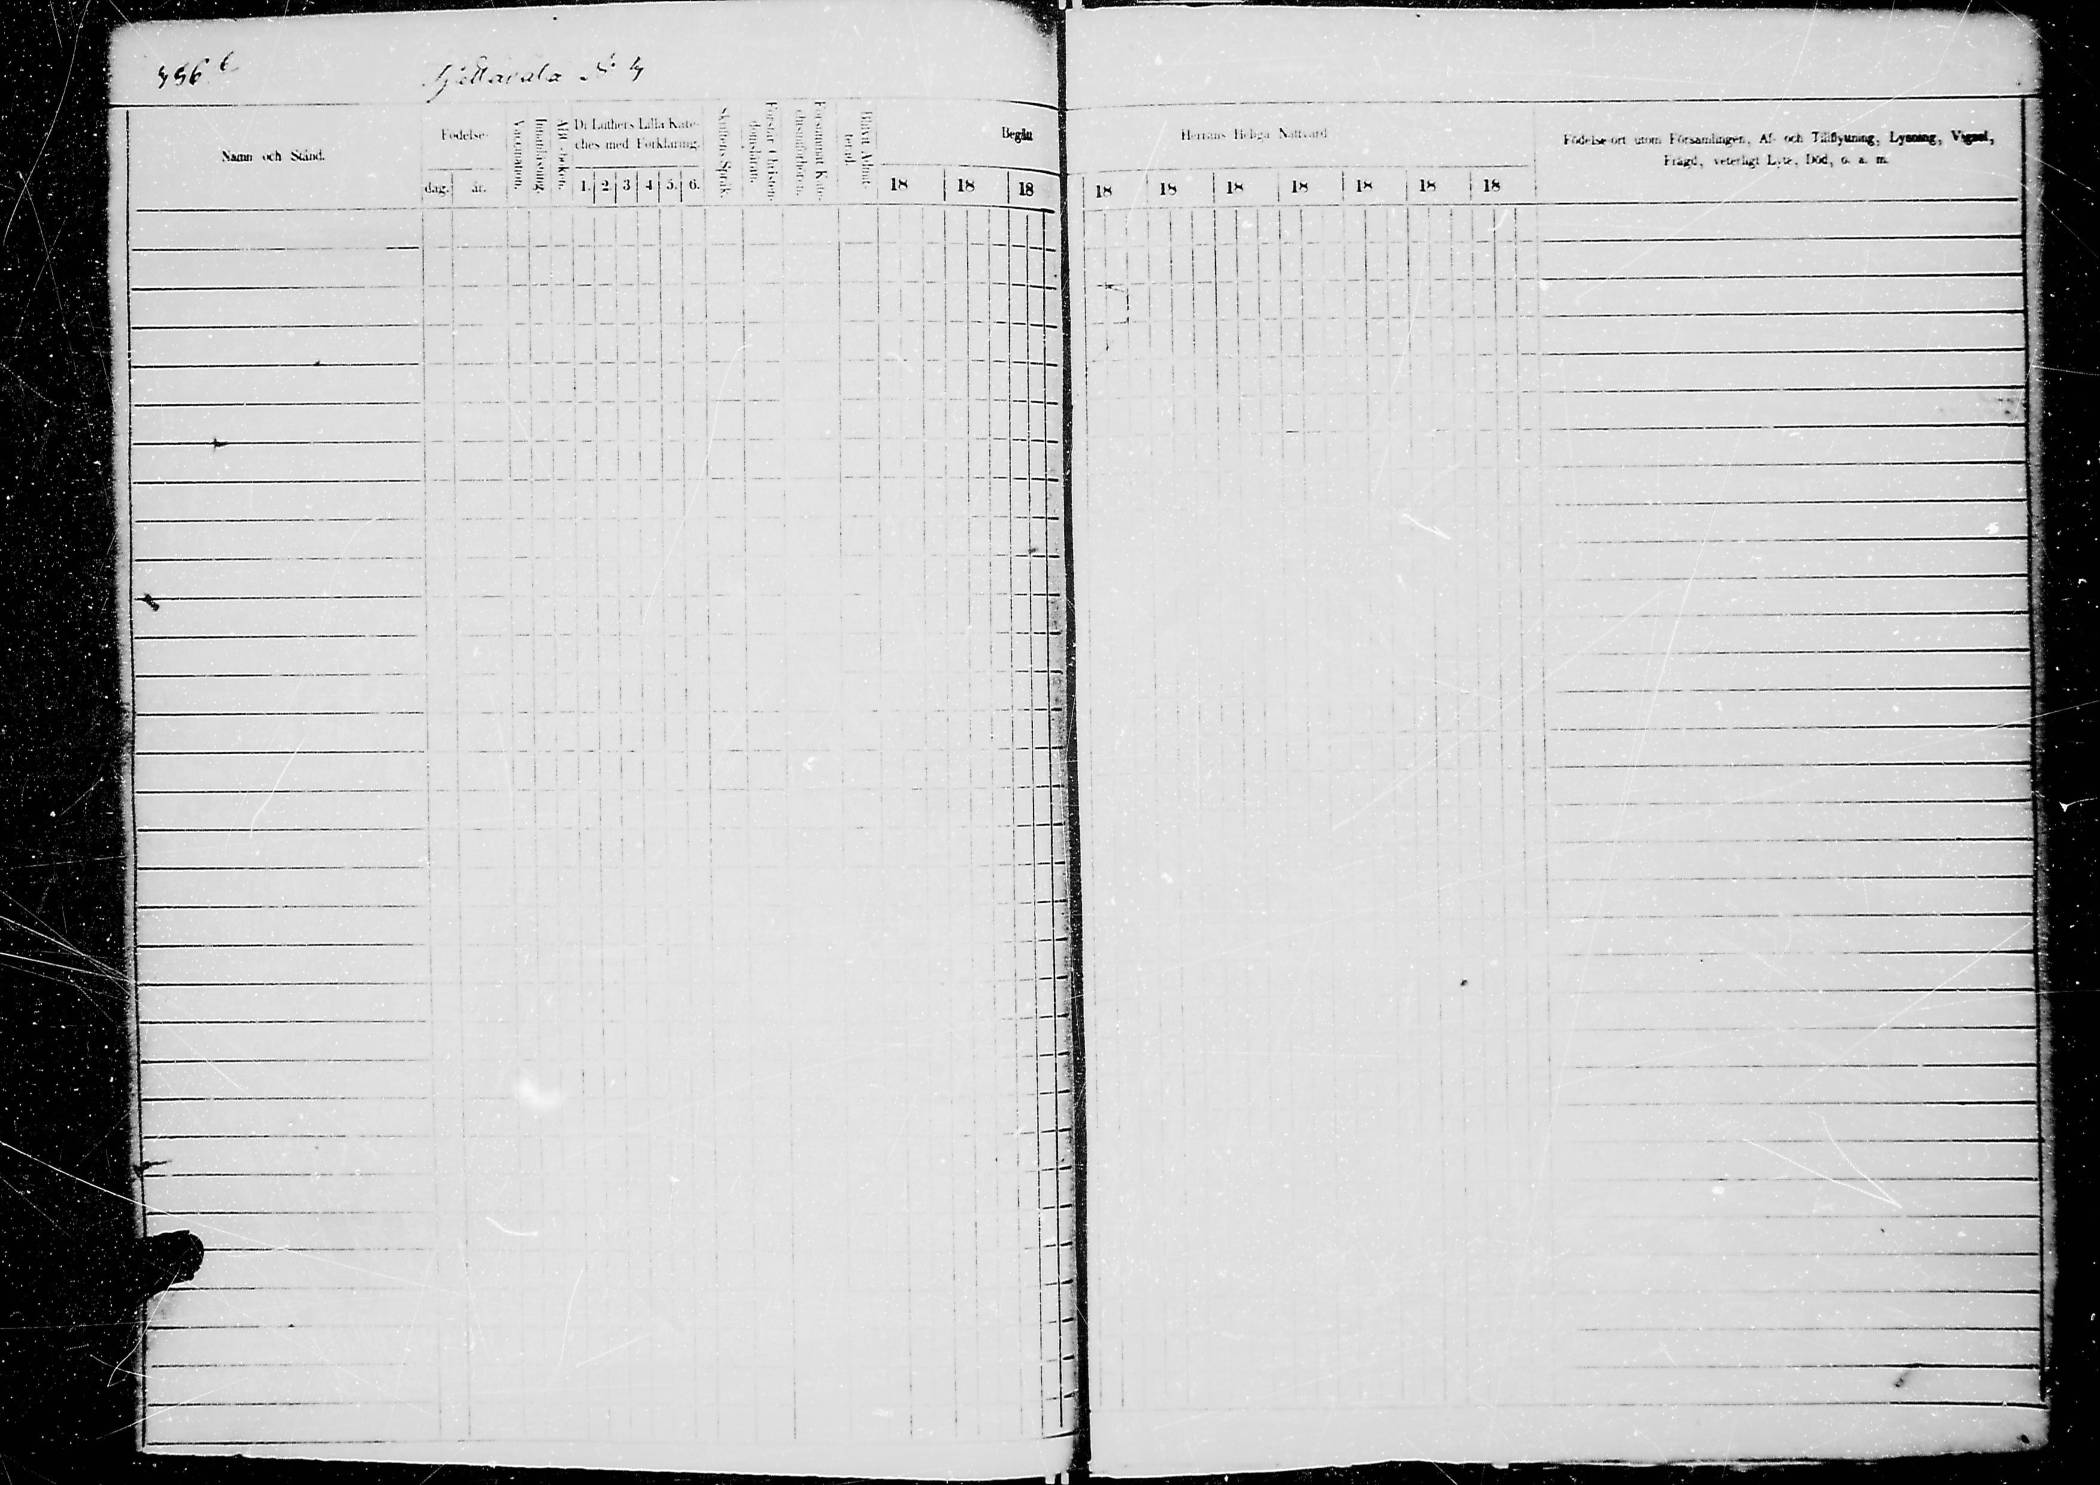 Namn och Stånd.
Födelse-
dag.
år.
Vaccination.
Innanläsning.
ABC-boken.
Dr Luthers Lilla Kate-
ches med Förklaring.
1. 2 3 4 5. 6.
Skriftens Språk.
Förstår Christen-
domslären.
Försummat Kate-
chismiförhören.
Blifvit Admit-
terad.
Begått
18 18 18
Herrans Heliga Nattvard
18 18 18 18 18 18 18
Födelse-ort utom Församlingen, Af- och Tillflyttning, Lysning, Vigsel,
Frägd, veterligt Lyte, Död, o. a. m.